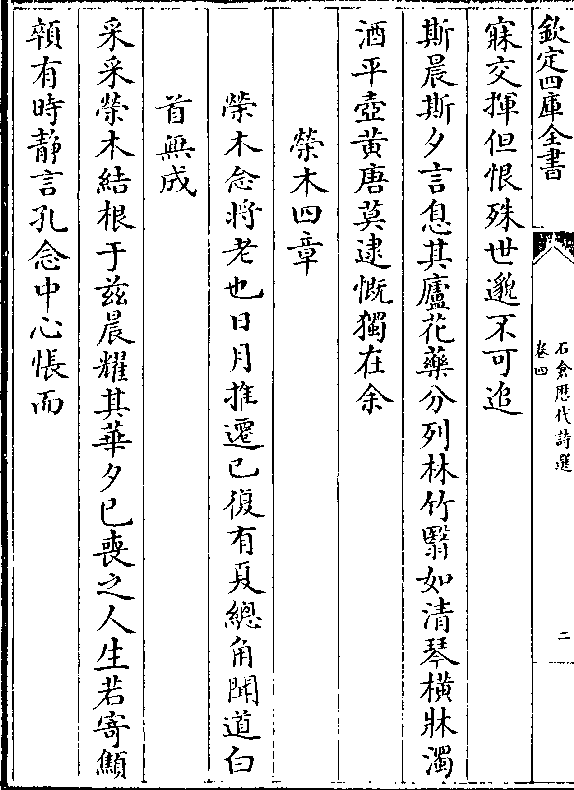 欽定四庫全書
石倉歷代詩選
卷四
二
寐交揮但恨殊世邈不可追
斯晨斯夕言息其廬花藥分列林竹翳如清琴橫牀濁
酒平壺黃唐莫逮慨獨在余
榮木四章
榮木念將老也日月推遷已復有夏總角聞道白
首無成
采采榮木結根于兹晨耀其華夕已喪之人生若寄顯
顇有時靜言孔念中心悵而